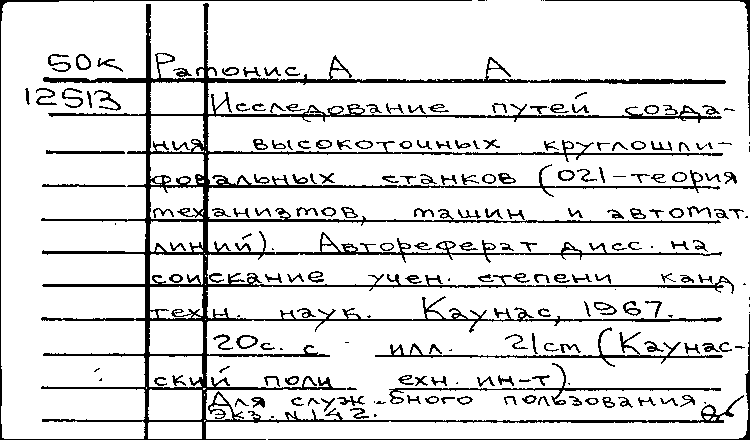 50к Ратонис, А А
12513 Исследование путей созда-
ния высокоточных круглошли-
фовальных станков (021-теория
механизмов, машин и автомат.
линий). Автореферат дисс. на
соискание учен. степени канд.
техн. наук. Каунас, 1967.
20с. с илл. 21cm (Каунас-
ский поли ехн. ин-т)
Для служ бного пользования.
Экз. N142.